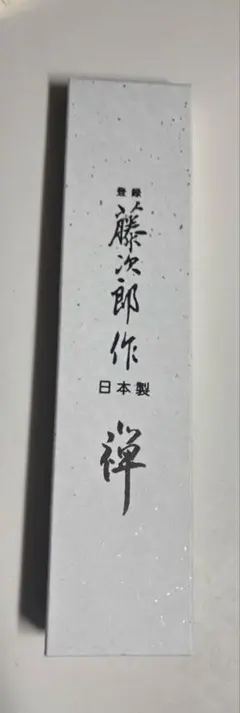 登録
藤次郎作
日本製
禅